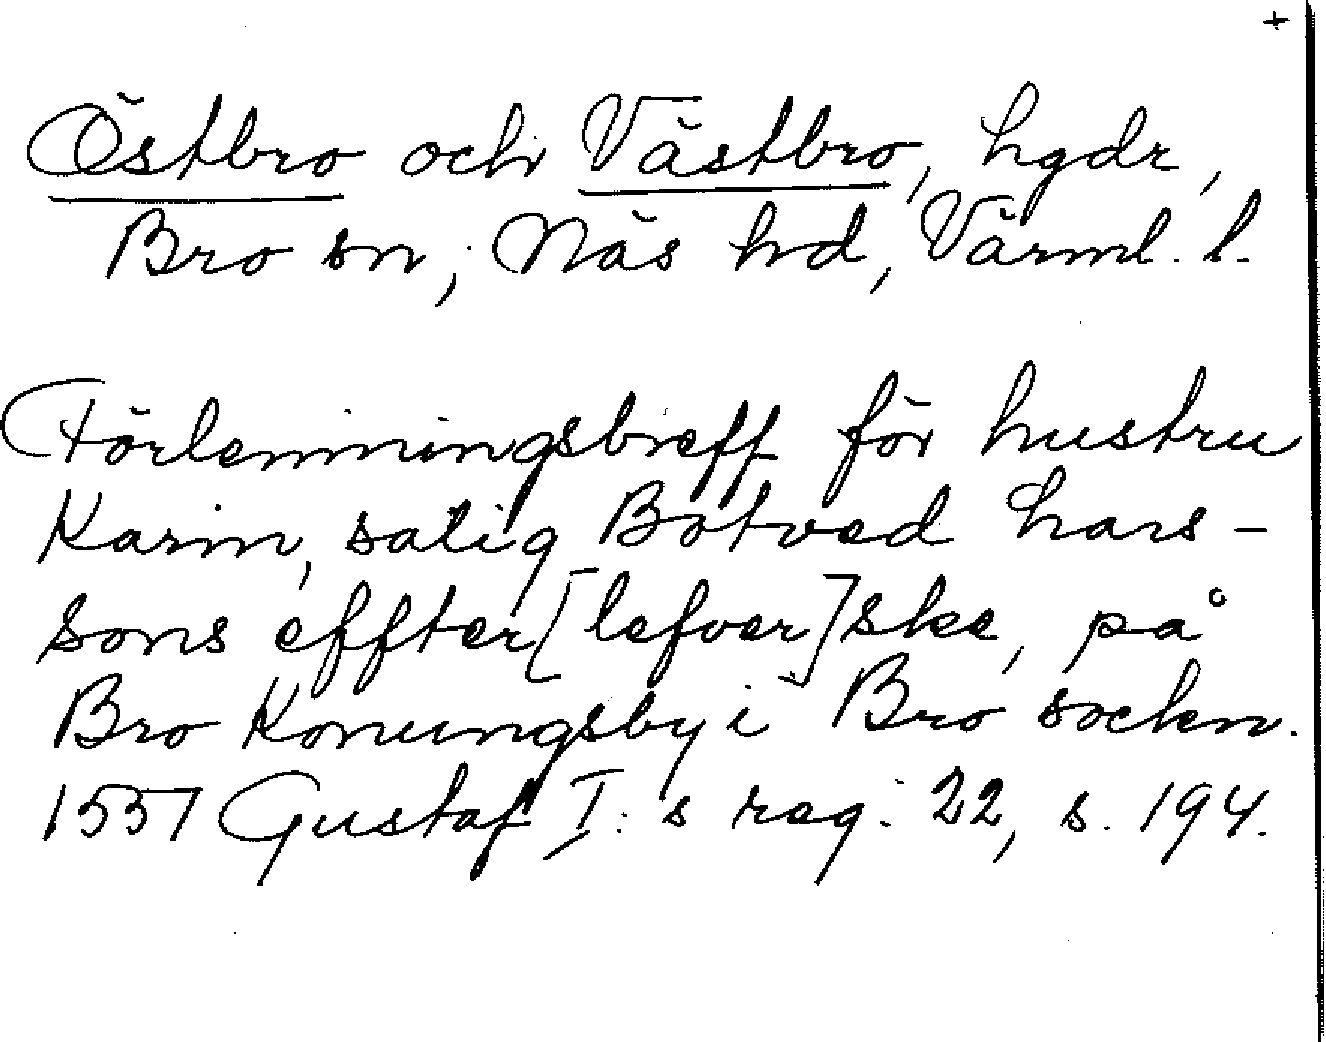 +
Östbro och Västbro, hgdr,
Bro sn, Näs hd, Värml. l.
Förlenningsbreff för hustru
Karin, salig Botved hans-
sons effter[lefver]ske, på
Bro Konungsby i Bro sockn.
1557 Gustaf I:s reg. 22, s. 194.